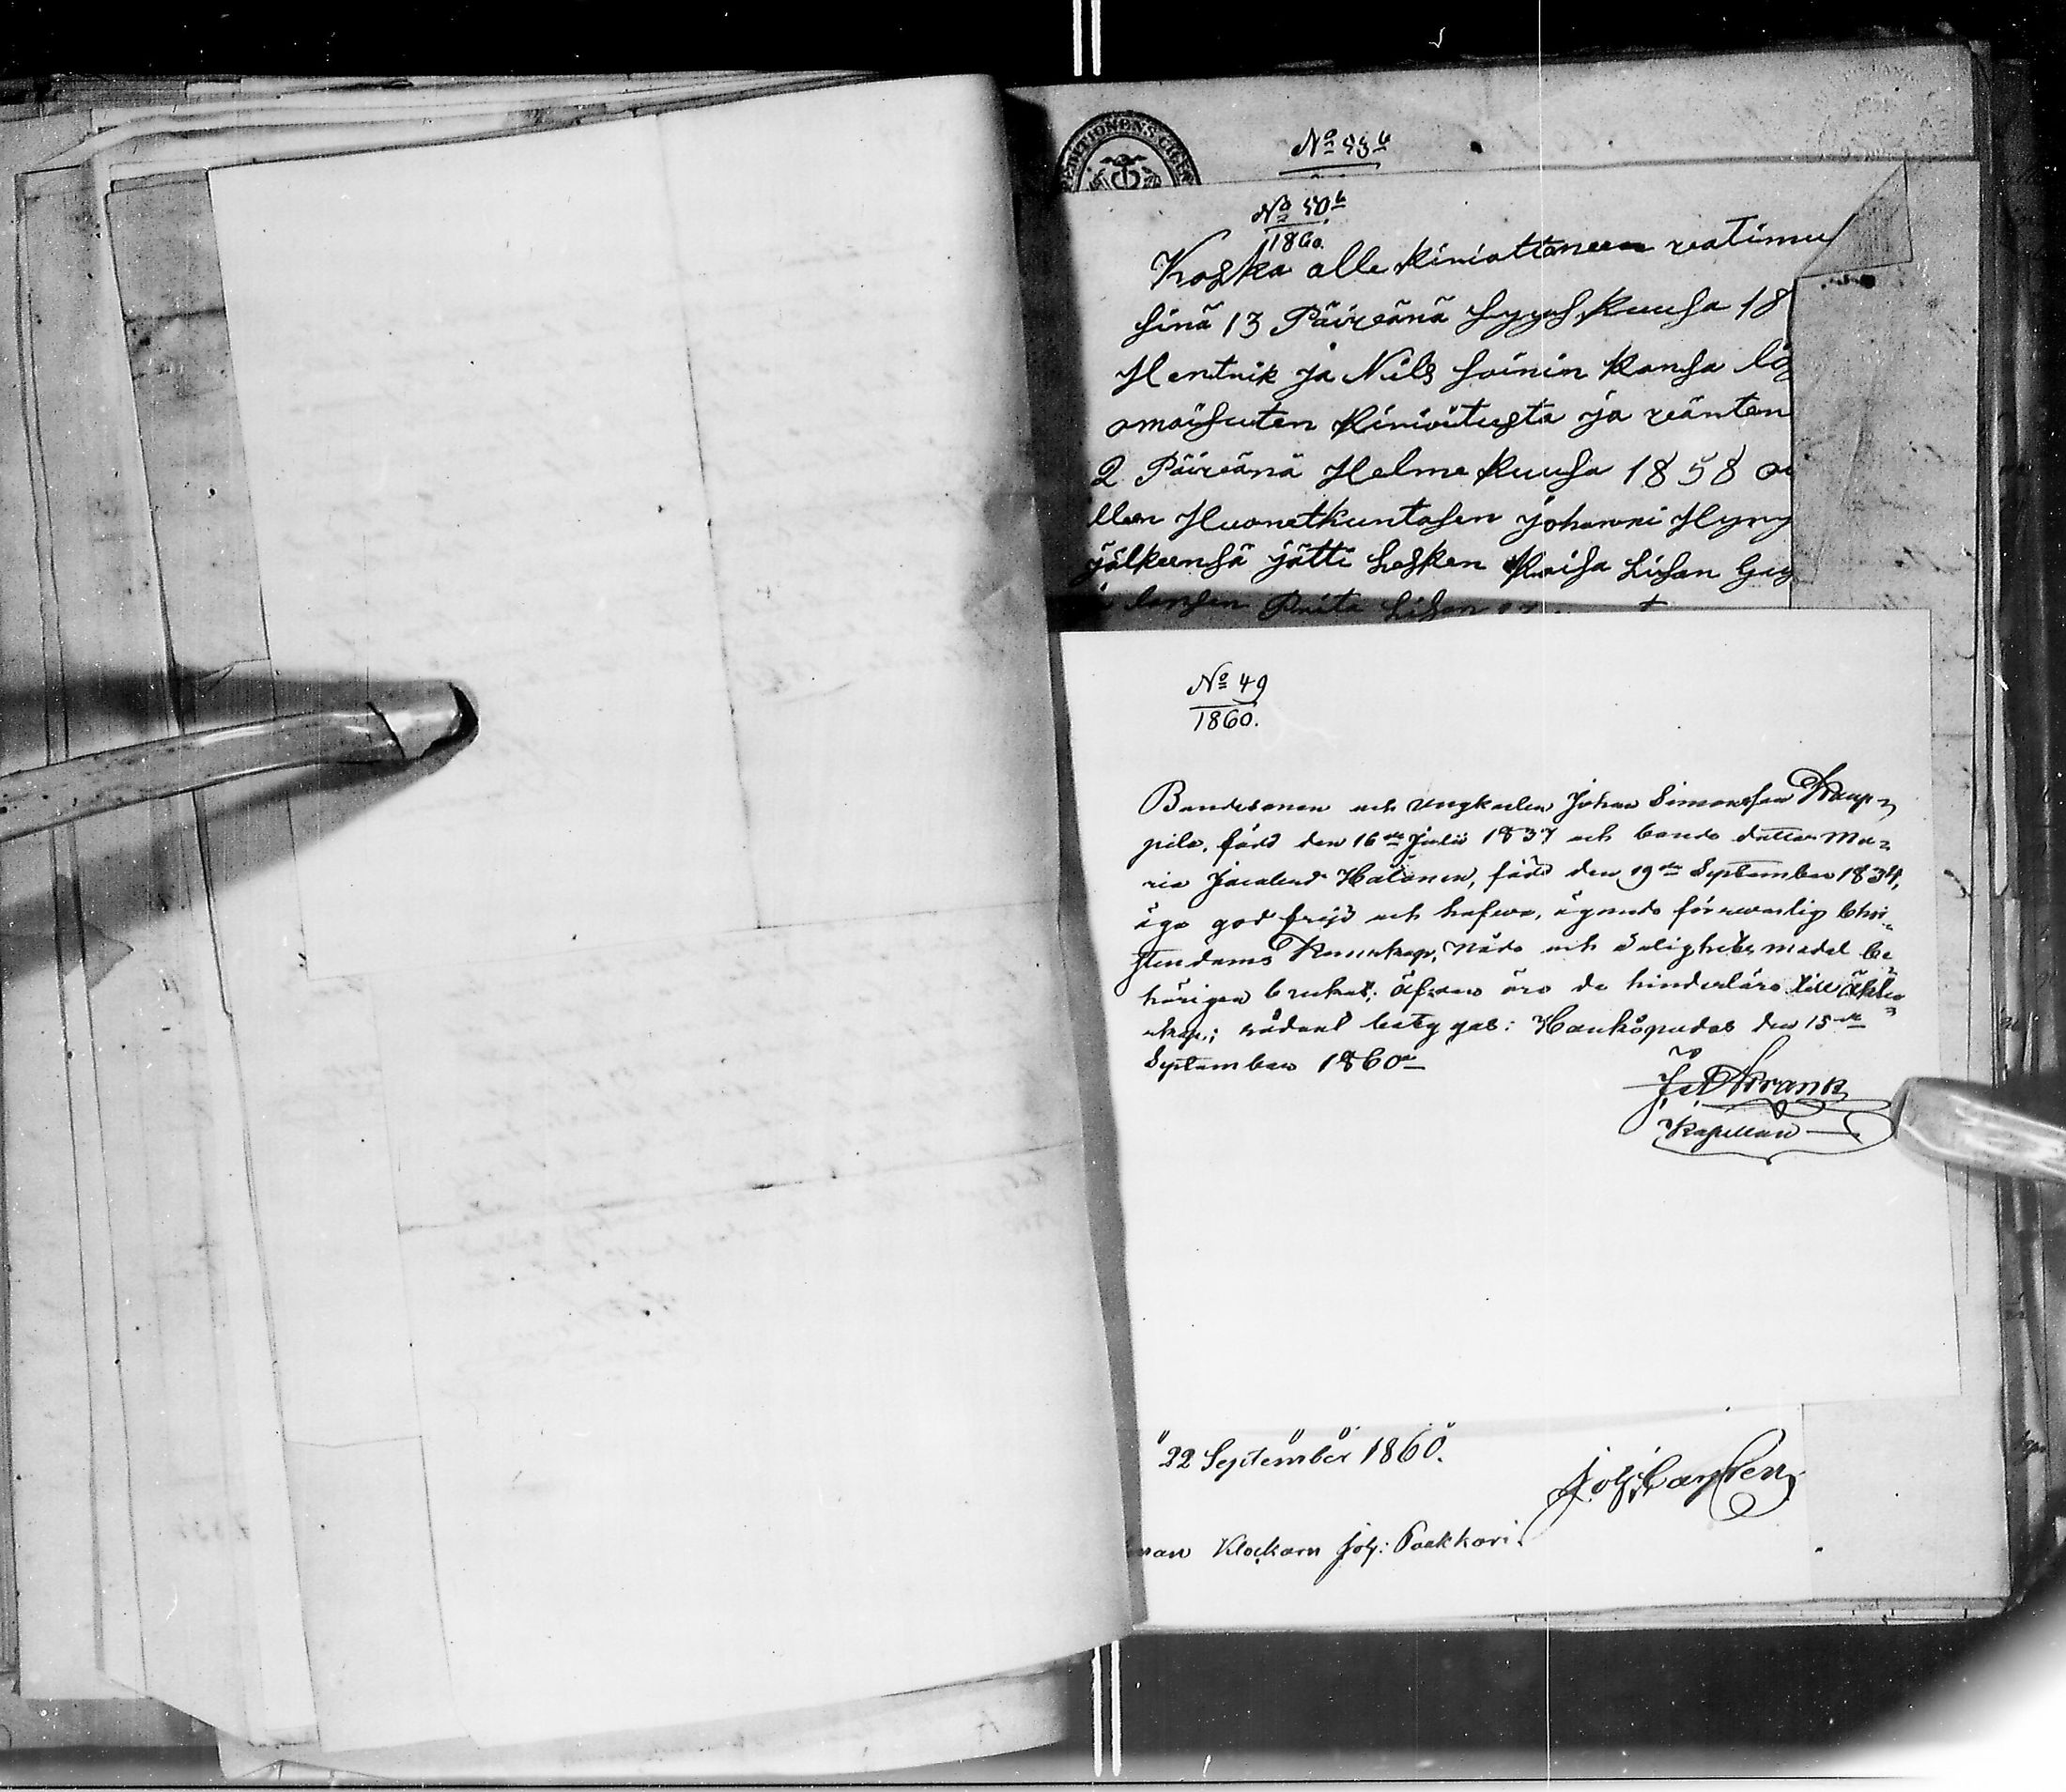 No 53 b
No 50 b
1860.
Koska alle kiriottaneen vatimu
sinä 13 Päiveänä Syys kuusa 18
Hentrik ja Nils Soinin kansa
omaisuten kirioitusta ja veänten
2 Päiveänä Helme kuusa 1858
llen Huonetkuntasen johanni Hyry
jälkeensä jätti Lesken Kaisa Lisan
Priita Lisan
No 49
1860.
Bondesonen och ungkarlen Johan Simonsson Kaup-
pila, född den 16de Julii 1837 och bonde dottern Ma-
ria Jacobsd. Halonen, född den 19de September 1834,
äga god frejd och hafva, ägande försvarlig Chri-
stendoms kunskap, Nåde och Salighets medel be-
hörigen brukat; äfven äro de hinderlösa till äkten-
skap; sådant betygas: Haukipudas den 15de
September 1860
Krank
Kapellan
22 September 1860.
Klockarn Joh: Paakkari.